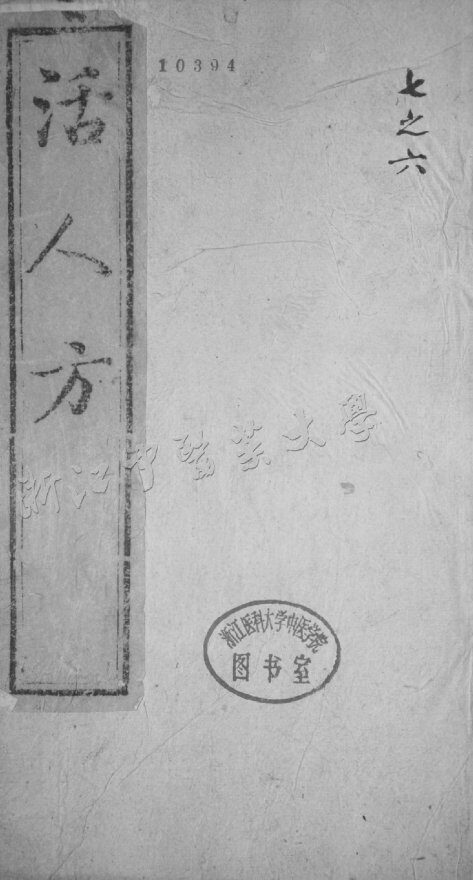 活人方
10394
七之六
浙江中医药大学
浙江医科大学中医学院
图书室